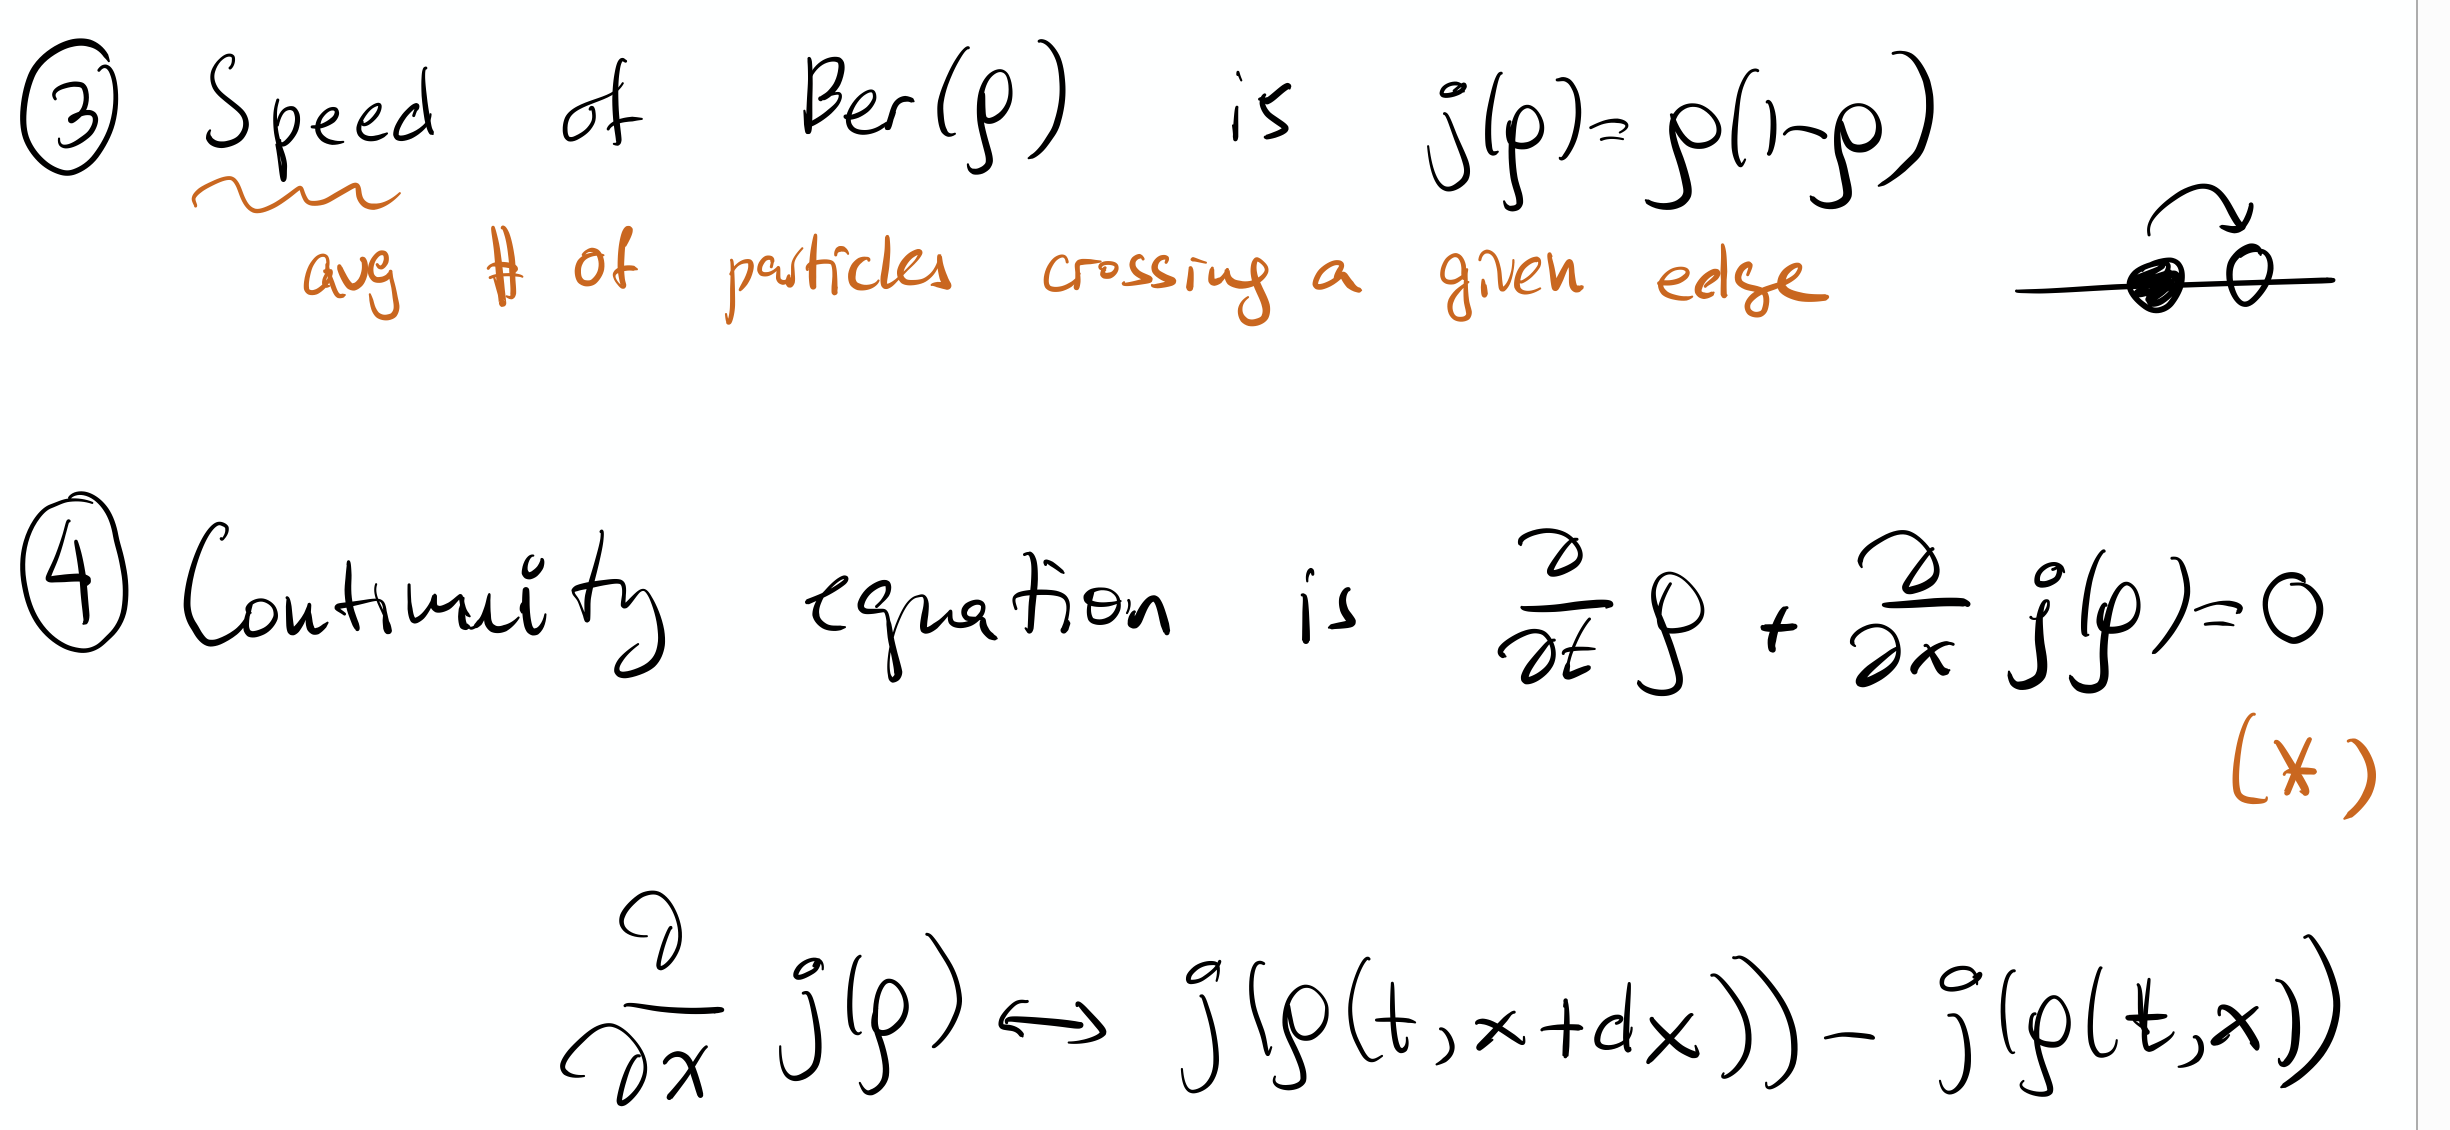 ③ Speed of Ber(ρ) is j(ρ)=ρ(1-ρ)
avg # of particles crossing a given edge
④ Continuity equation is ∂/∂t ρ + ∂/∂x j(ρ)=0
(*)
∂/∂x j(ρ) ↔ j(ρ(t,x+dx)) - j(ρ(t,x))